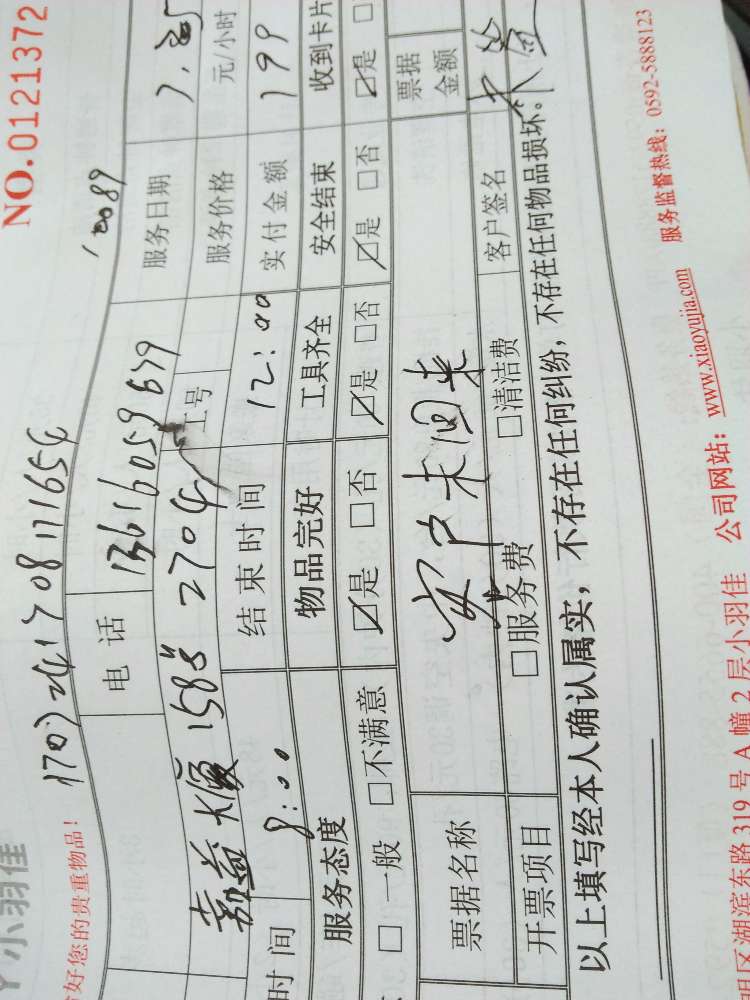 小羽佳
好您的贵重物品!
NO.0121372
17072417081171654
10089
电话 13616059679 服务日期 7.25
嘉益大厦158号2704 工号 服务价格 元/小时
时间 8:00 结束时间 12:00 实付金额 199
服务态度 物品完好 工具齐全 安全结束 收到卡片
□一般 □不满意 ☑是 □否 ☑是 □否 ☑是 □否 ☑是 □
票据名称 客户未回来 票据金额
开票项目 □服务费 □清洁费 客户签名 未签
以上填写经本人确认属实,不存在任何纠纷,不存在任何物品损坏。
明区湖滨东路319号A幢2层小羽佳 公司网站:www.xiaoyujia.com 服务监督热线:0592-5888123